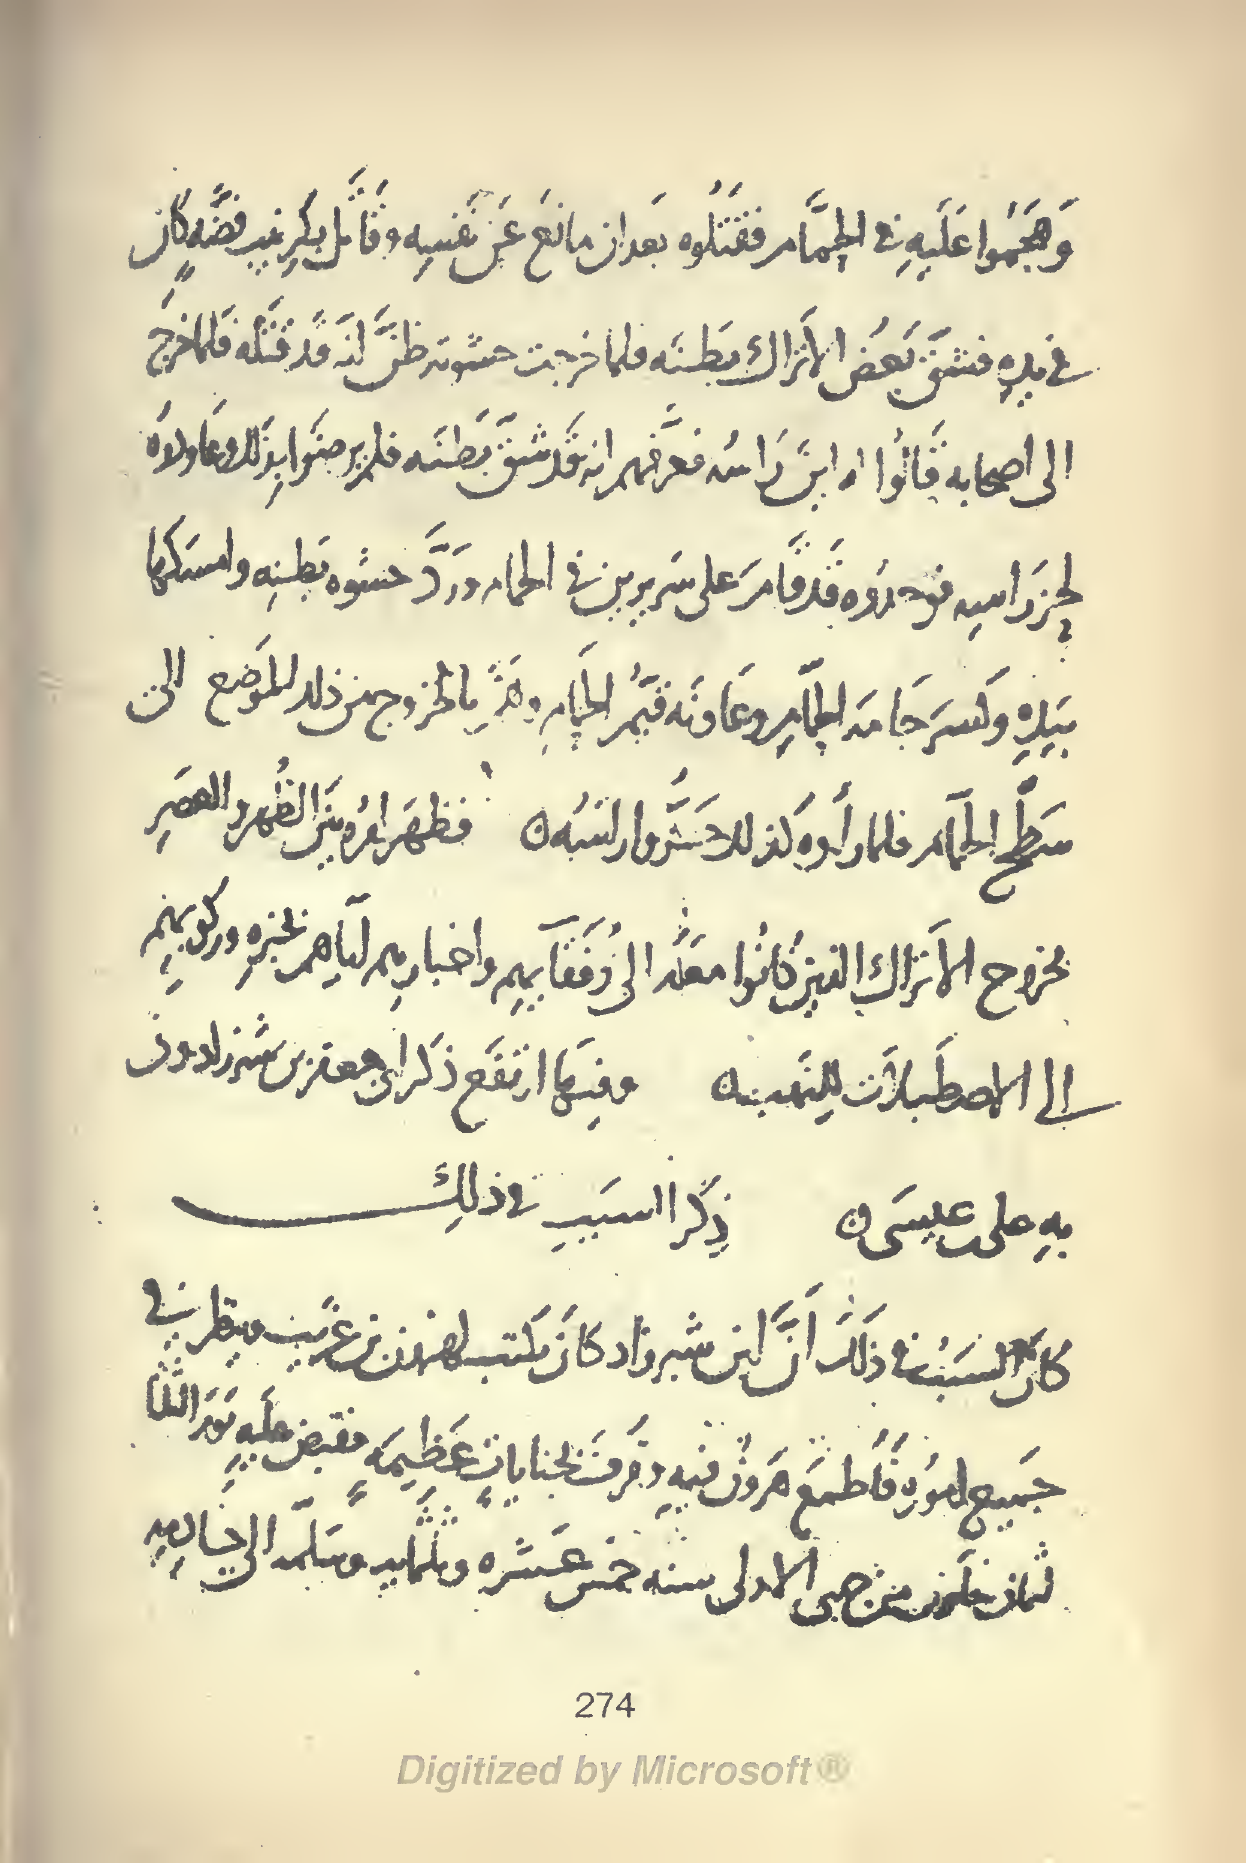 وَهَجَمُوا عَلَيهِ في الحمّام فقَتَلُوه بَعد ان مانَعَ عَن نَفسِهِ وقَاتَل بكُرنيب فضّه كان
في يدِهِ فشقَّ بَعضُ الأتراك بَطنَه فلما خرجت حشوته ظنَّ انه قَد قَتَلَه فلما خرَج
الى اصحابه قَالُوا له اينَ رَاسُه فعرَّفهم انه قَد شقَّ بَطنَه فلم يرضَوا بذَلك وعَاودوه
لحز رَاسِه فوجدُوه قَد قَامَ على سَريرين في الحمام ورَدَّ حشوه بَطنِه وامسَكها
بيَدِهِ وكَسَرَ جَامَه الحمّام وعَاونَه قيّمُ الحمَّامِ وهَمَّ بالخروج من ذلك الموَضع الى
سَطح الحمّام فلما رأَوه كذلك حَزُّوا راسَه ٥ فظهَر امرُه بينَ الظُهر والعصَرِ
بخروج الأتراك الذين كَانُوا معَهُ الى رُفَقَآيهم واخبارِهم ايّاهم بخبرِهِ وركوبهِم
الى الاصطَبلات للنهب ٥ وفيهَا ارتفَع ذكر ابي جعفر بن شيرزاد ووَ
به على عيسَى ٥ ذِكر السبَبِ في ذلِك
كانَ السَبَبُ في ذَلكَ أَنَّ ابن شيرزاد كانَ يكَتب لهرون بن غريب وينظر في
جَميع امُورِهِ فَاطمَعَ هَرونَ فيهِ وقُرفَ بخنايات عَظِيمَه فقبضَ عليهِ يَومَ الثلثا
لثمان خلَون من جمدى الاولى سنه خمس عَشَره وثلثمايه وسَلّمه الى خادمه
274
Digitized by Microsoft®